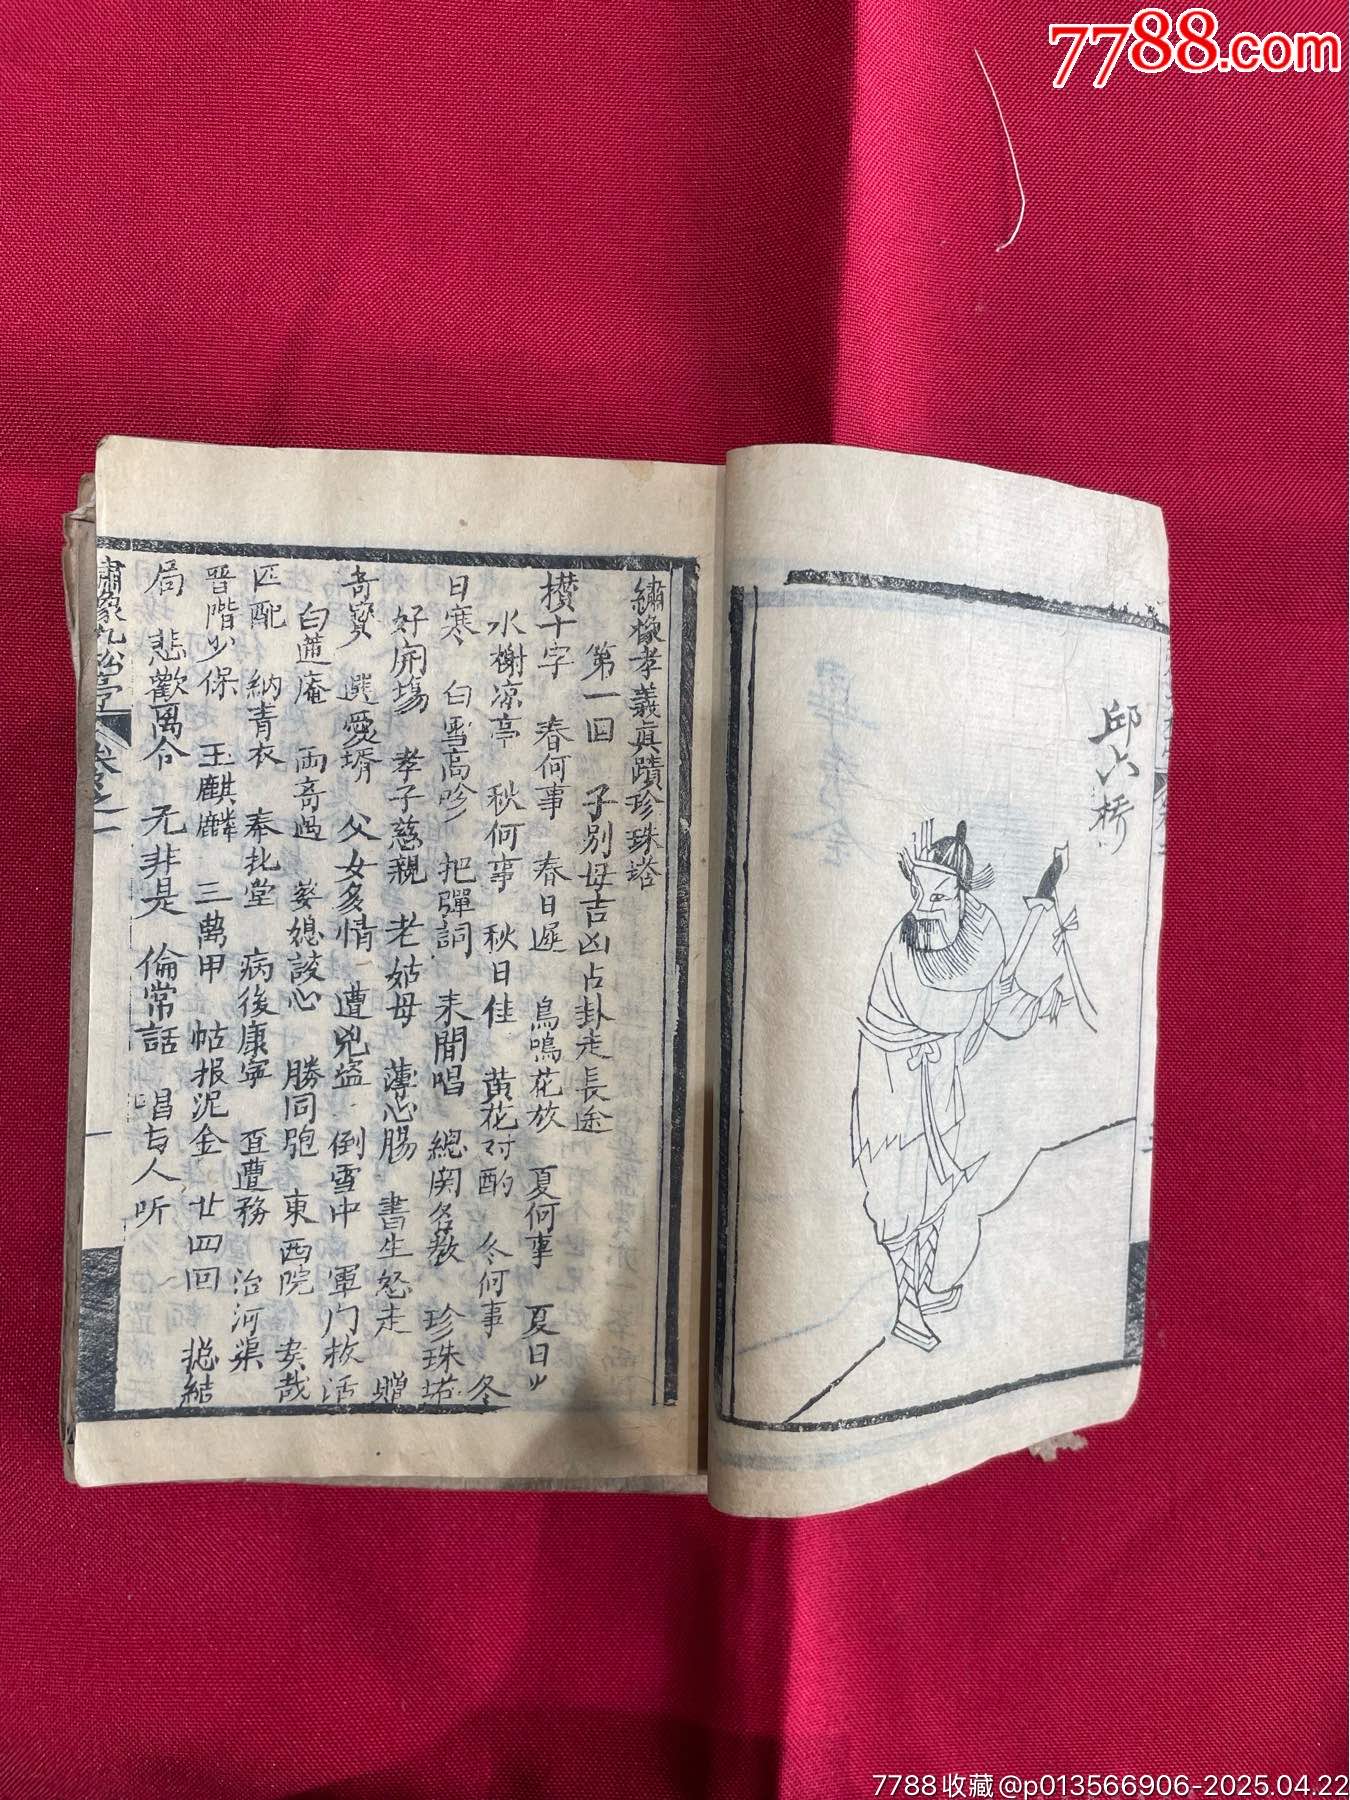 7788.com
邱六橋
繡像孝義眞蹟珍珠塔
第一回 子別母吉凶占卦走長途
攅十字 春何事 春日遲 鳥鳴花放 夏何事 夏日少
水榭凉亭 秋何事 秋日佳 黃花对酌 冬何事 冬
日寒 白雪高吟 把彈詞 来閒唱 總関名教 珍珠塔
好開塲 孝子慈親 老姑母 薄心腸 書生怒走 贈
奇寶 選愛壻 父女多情 遭兇盜 倒雪中 軍门救活
白蓮庵 両奇遇 婆媳談心 勝同胞 東西院 妾哉
匹配 納青衣 奉北堂 病後康寧 直遭務 治河渠
晋階少保 玉麒麟 三萬甲 帖报泥金 廿四回 總結
局 悲歡离合 无非是 倫常話 唱与人听
繡像九松亭 卷之一
7788收藏@p013566906-2025.04.22